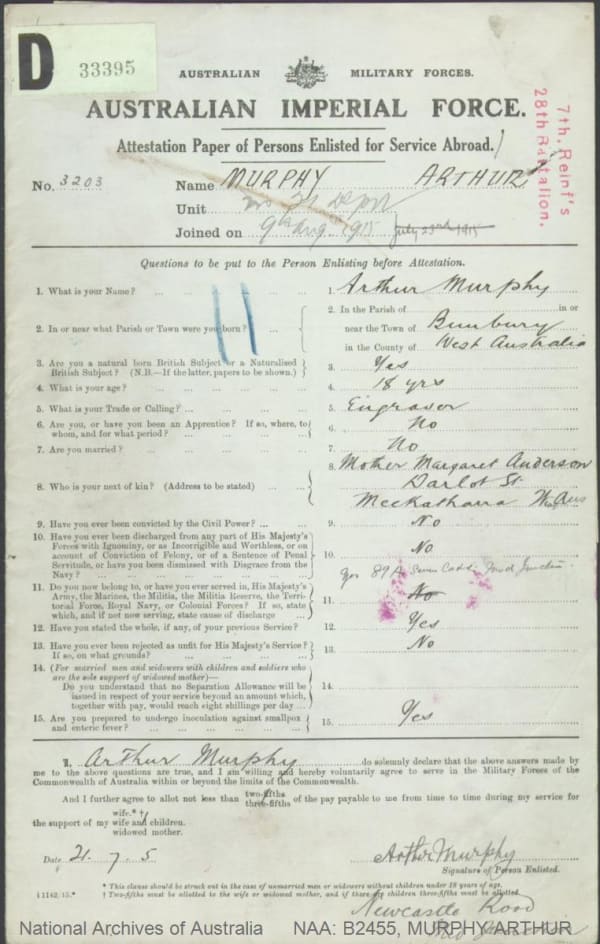 D
33395
AUSTRALIAN MILITARY FORCES.
AUSTRALIAN IMPERIAL FORCE.
7th. Reinf's
28th Battalion.
Attestation Paper of Persons Enlisted for Service Abroad.
No. 3203 Name MURPHY ARTHUR
Unit
Joined on 9th Aug 1915 July 23rd 1915
Questions to be put to the Person Enlisting before Attestation.
11
1. What is your Name? ... 1. Arthur Murphy
2. In or near what Parish or Town were you born? ... 2. In the Parish of in or
near the Town of Bunbury
in the County of West Australia
3. Are you a natural born British Subject or a Naturalised
British Subject? (N.B.—If the latter, papers to be shown.) 3. Yes
4. What is your age? ... 4. 18 yrs
5. What is your Trade or Calling? ... 5. Engraver
6. Are you, or have you been an Apprentice? If so, where, to
whom, and for what period? ... 6. No
7. Are you married? ... 7. No
8. Who is your next of kin? (Address to be stated) ... 8. Mother Margaret Anderson
Darlot St.
Meekatharra W. Aus
9. Have you ever been convicted by the Civil Power? ... 9. No
10. Have you ever been discharged from any part of His Majesty's
Forces with Ignominy, or as Incorrigible and Worthless, or on
account of Conviction of Felony, or of a Sentence of Penal
Servitude, or have you been dismissed with Disgrace from the
Navy? ... 10. No
yes 89 A
11. Do you now belong to, or have you ever served in, His Majesty's
Army, the Marines, the Militia, the Militia Reserve, the Terri-
torial Force, Royal Navy, or Colonial Forces? If so, state
which, and if not now serving, state cause of discharge 11. No
12. Have you stated the whole, if any, of your previous Service? 12. Yes
13. Have you ever been rejected as unfit for His Majesty's Service?
If so, on what grounds? ... 13. No
14. (For married men and widowers with children and soldiers who
are the sole support of widowed mother)—
Do you understand that no Separation Allowance will be
issued in respect of your service beyond an amount which,
together with pay, would reach eight shillings per day ... 14.
15. Are you prepared to undergo inoculation against smallpox
and enteric fever? ... 15. Yes
I, Arthur Murphy do solemnly declare that the above answers made by
me to the above questions are true, and I am willing and hereby voluntarily agree to serve in the Military Forces of the
Commonwealth of Australia within or beyond the limits of the Commonwealth.
And I further agree to allot not less than two-fifths three-fifths of the pay payable to me from time to time during my service for
the support of my wife.*† wife and children. widowed mother.
Date 21. 7. 5 Arthur Murphy
Signature of Person Enlisted.
* This clause should be struck out in the case of unmarried men or widowers without children under 18 years of age.
† Two-fifths must be allotted to the wife or widowed mother, and if there are children three-fifths must be allotted.
§1142/15.*
Newcastle Road
National Archives of Australia NAA: B2455, MURPHY ARTHUR